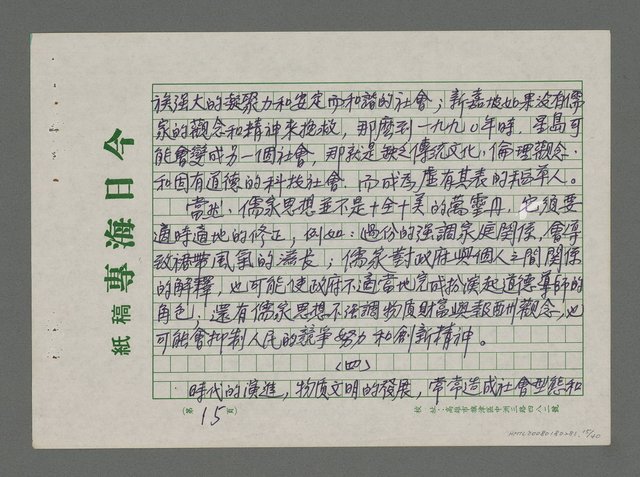 族強大的凝聚力和安定而和諧的社會；新嘉坡如果沒有儒
家的觀念和精神來挽救，那麼到一九九〇年時，星島可
能會變成另一個社會，那就是缺乏傳統文化、倫理觀念、
和固有道德的科技社會．而成為虛有其表的稻草人。
當然，儒家思想並不是十全十美的萬靈丹，它須要
適時適地的修正，例如：過份的強調家庭關係，會導
致裙帶風氣的滋長；儒家對政府與個人之間關係
的解釋，也可能使政府不適當地完成扮演起道德導師的
角色．還有儒家思想不強調物質財富與報酬觀念，也
可能會抑制人民的競爭努力和創新精神。
（四）
時代的演進，物質文明的發展，常常造成社會型態和
今日海專
稿紙
第15頁
校 址：高雄市旗津區中洲三路四八二號
15/40